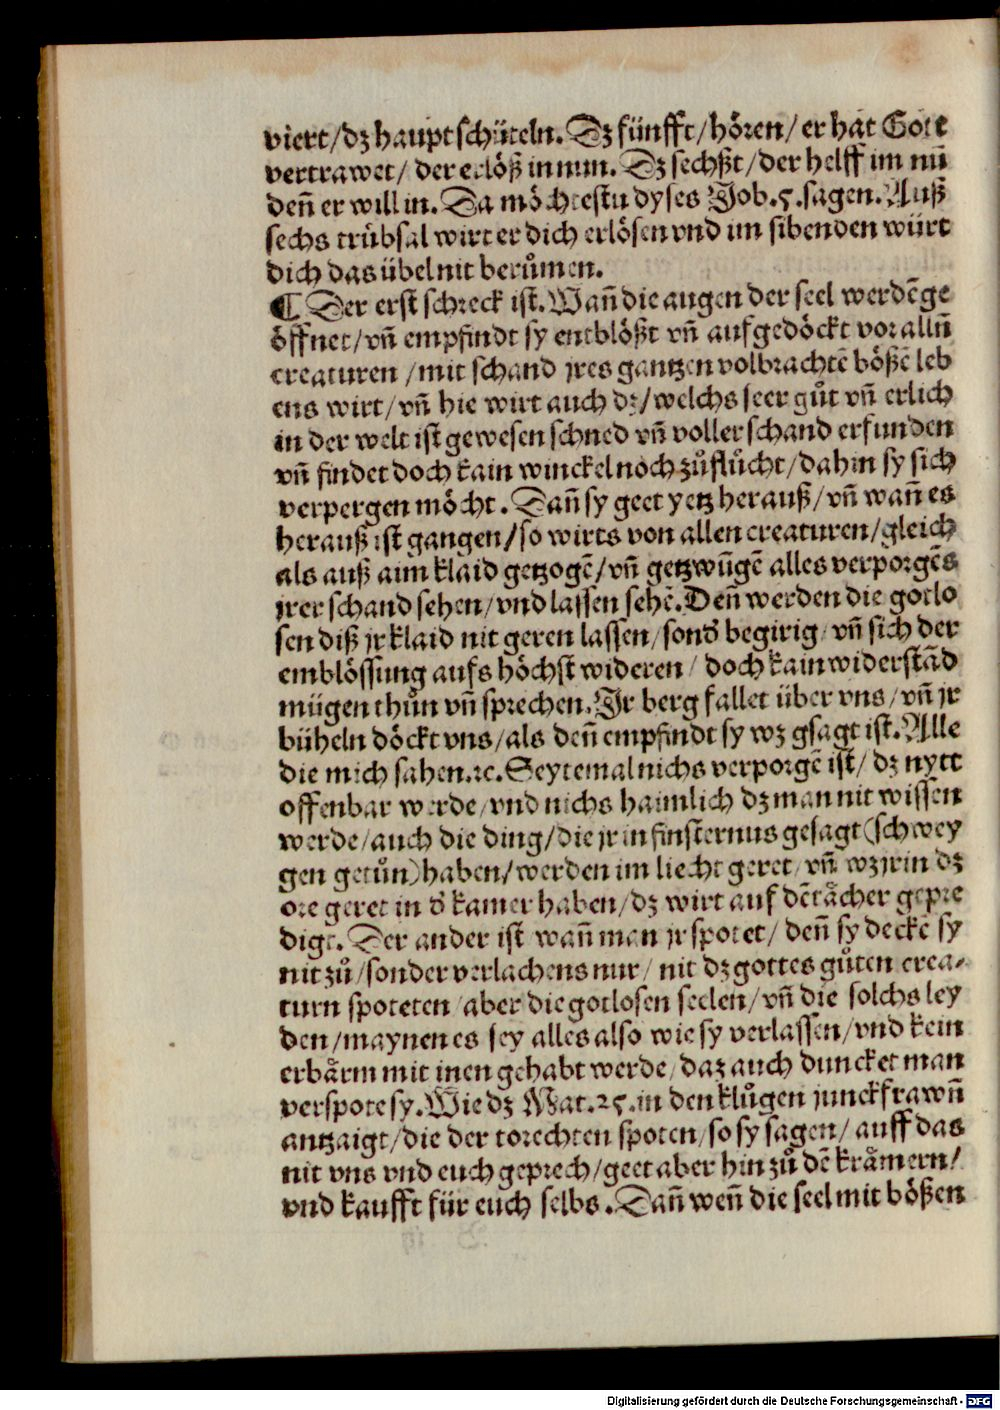 viert/dz haupt schüteln. Dz fünfft/hören/er hat Gote
vertrawet/ der erlöß in nun. Dz sechßt/der helff im nū
deñ er will in. Da möchtestu dyses Job.5.sagen. Auß
sechs trůbsal wirt er dich erlösen vnd im sibenden würt
dich das übel nit berůmen.
¶ Der erst schreck ist. Wañ die augen der seel werdē ge
öffnet/vñ empfindt sy entblößt vñ aufgedöckt vor allñ
creaturen /mit schand jres gantzen volbrachtē bößē leb
ens wirt/vñ hie wirt auch dz/welchs seer gůt vñ erlich
in der welt ist gewesen schned vñ voller schand erfunden
vñ findet doch kain winckel noch zůflůcht/dahin sy sich
verpergen möcht. Dañ sy geet yetz herauß/vñ wañ es
herauß ist gangen/so wirts von allen creaturen/gleich
als auß aim klaid getzogē/vñ getzwūgē alles verporgēs
jrer schand sehen/vnd lassen sehē. Deñ werden die gotlo
sen diß jr klaid nit geren lassen/sonď begirig/vñ sich der
emblössung aufs höchst wideren/ doch kain widerstād
mügen thůn vñ sprechen. Ir berg fallet über vns/vñ jr
büheln döckt vns/als deñ empfindt sy wz gsagt ist. Alle
die mich sahen.ꝛc. Seytemal nichs verporgē ist/ dz nytt
offenbar werde/vnd nichs haimlich dz man nit wissen
werde/auch die ding/die jr in finsternus gesagt (schwey
gen getůn) haben/werden im liecht geret/vñ wz jr in dz
ore geret in ď kamer haben/dz wirt auf dē tåcher gepre
digt. Der ander ist wañ man jr spotet/ deñ sy deckē sy
nit zů/sonder verlachens nur/ nit dz gottes gůten crea⸗
turn spoteten/aber die gotlosen seelen/vñ die solchs ley
den/maynen es sey alles also wie sy verlassen/vnd kein
erbårm mit inen gehabt werde/daz auch duncket man
verspote sy. Wie dz Mat.25.in den klůgen junckfrawñ
antzaigt/die der torechten spoten/so sy sagen/ auff das
nit vns vnd euch geprech/geet aber hin zů dē kråmern/
vnd kaufft für euch selbs. Dañ weñ die seel mit bößen
Digitalisierung gefördert durch die Deutsche Forschungsgemeinschaft - DFG